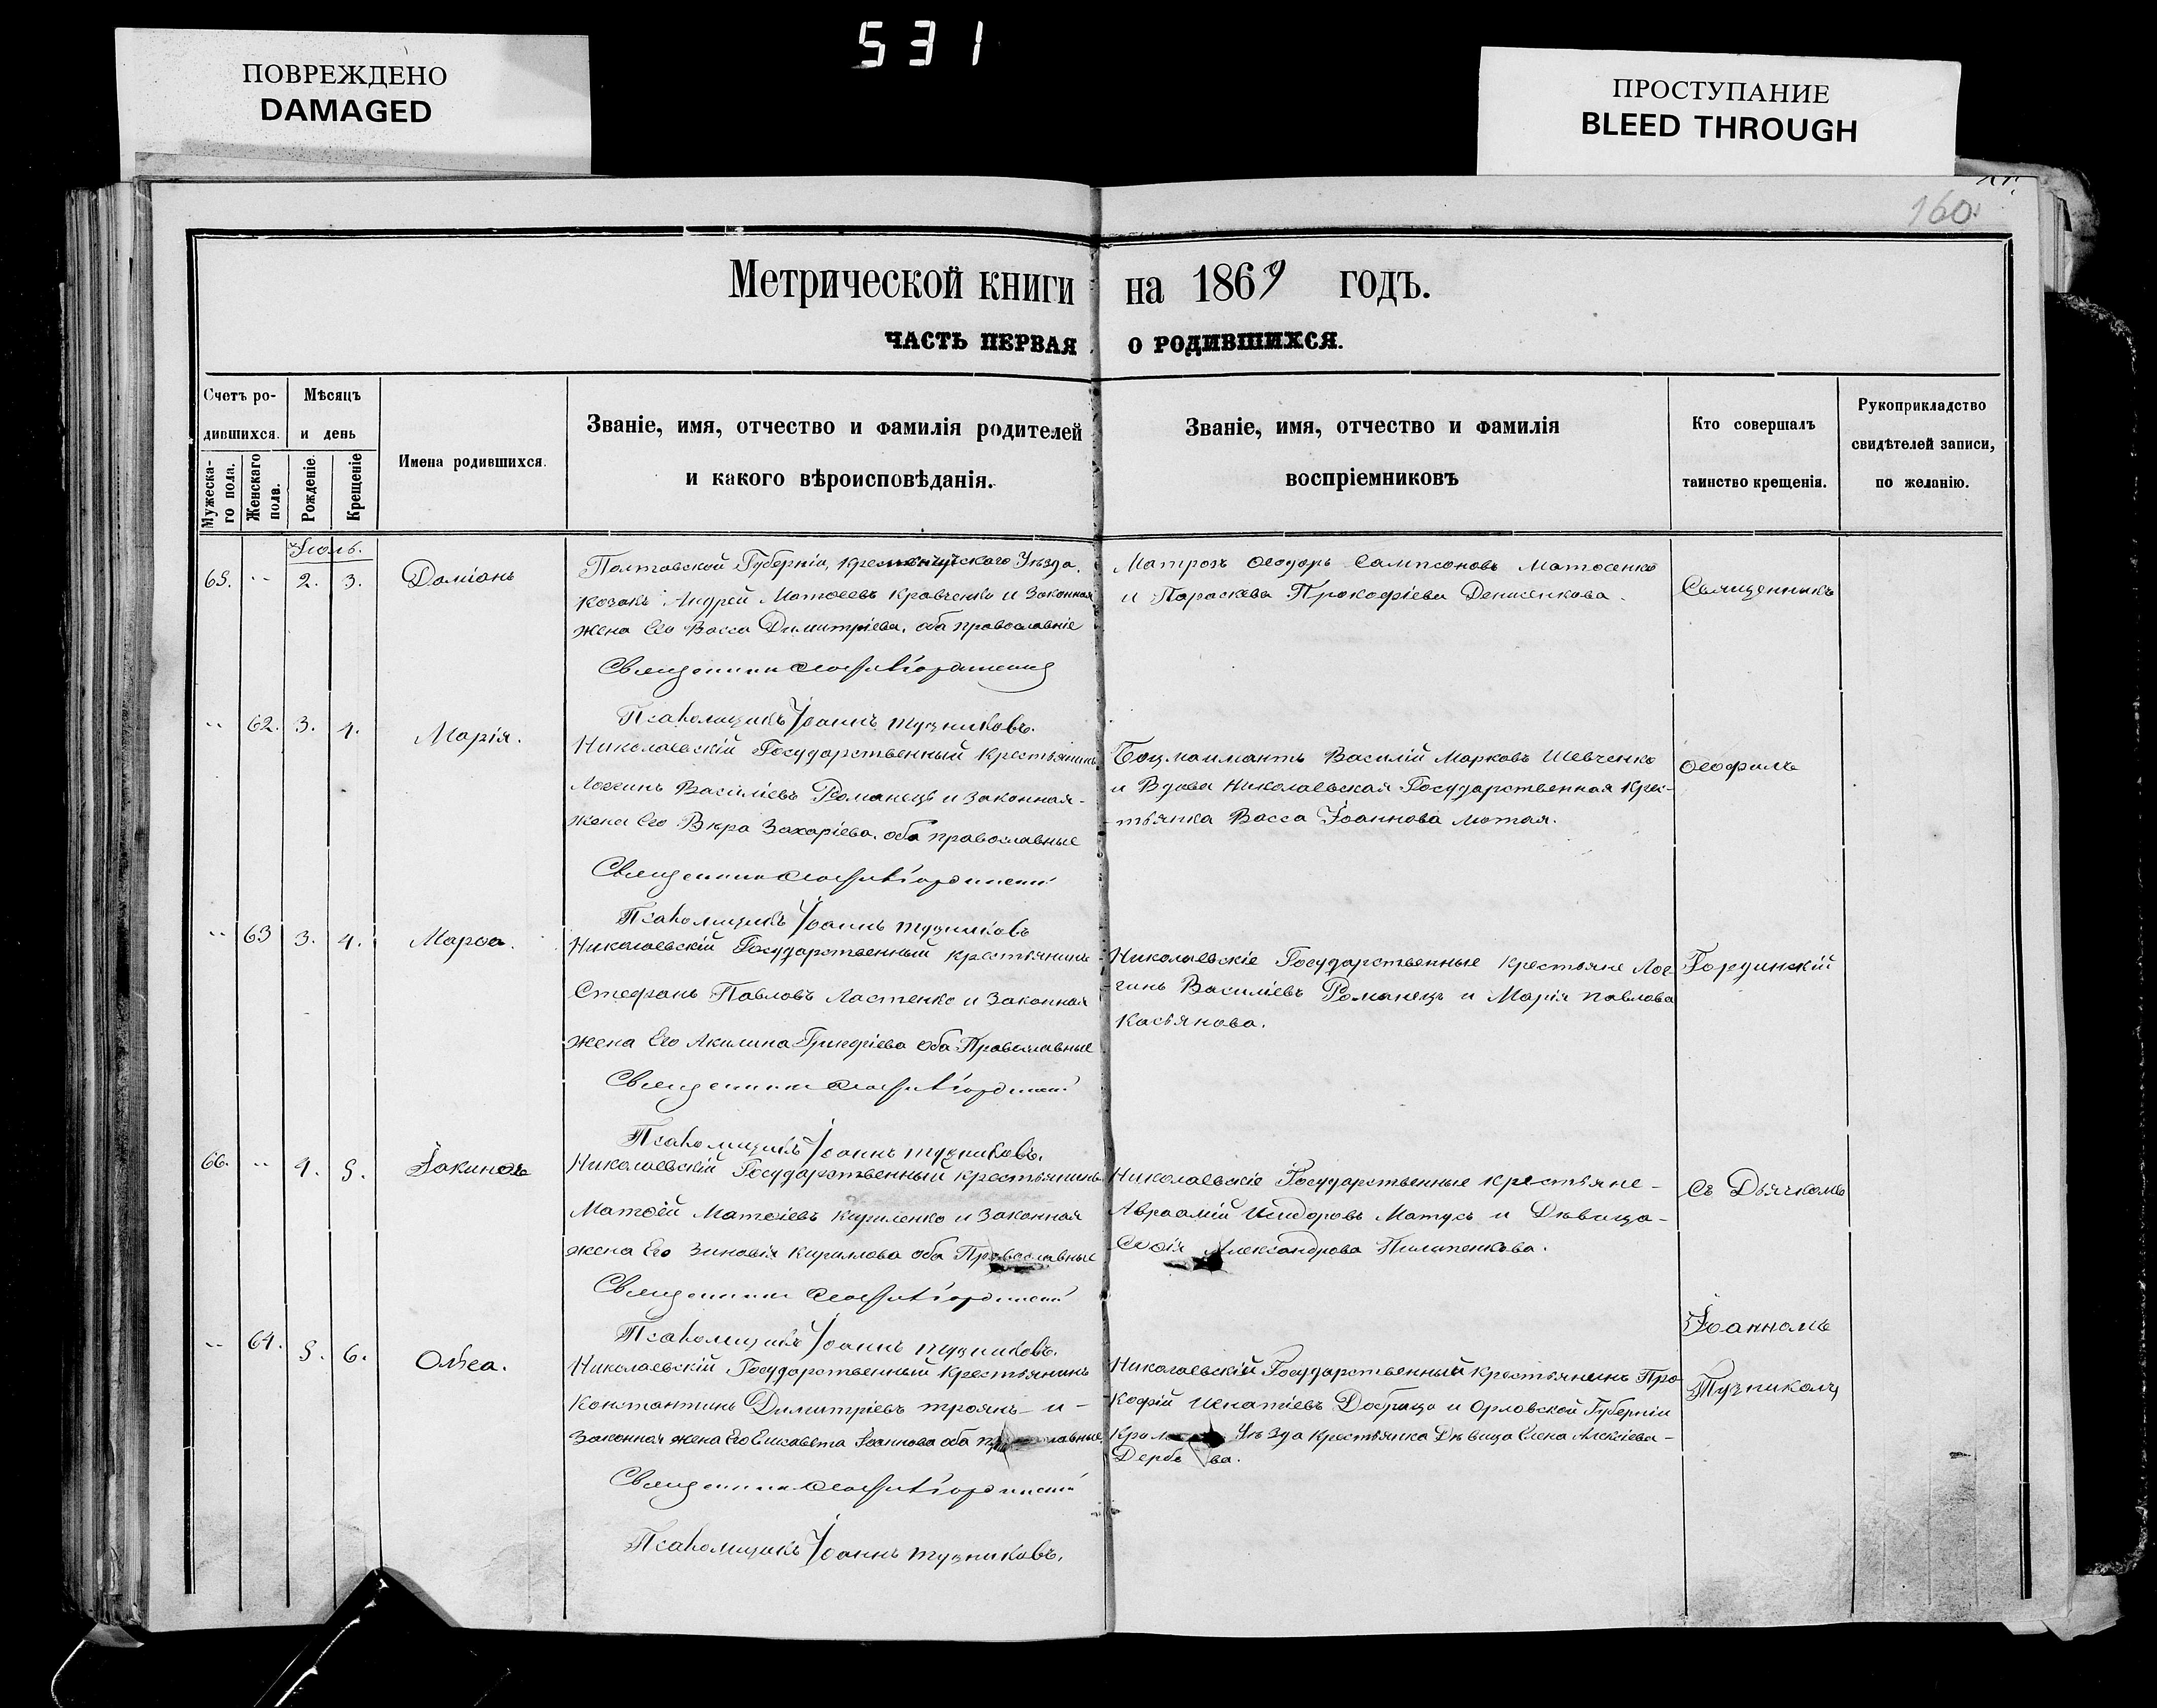 531
ПОВРЕЖДЕНО
DAMAGED
ПРОСТУПАНИЕ
BLEED THROUGH
160.
Метрической книги на 1869 годъ.
ЧАСТЬ ПЕРВАЯ О РОДИВШИХСЯ.
Счетъ ро-
дившихся.
Мужеска-
го пола.
Женскаго
пола.
Мѣсяцъ
и день
Рожденіе.
Крещеніе
Имена родившихся.
Званіе, имя, отчество и фамилія родителей
и какого вѣроисповѣданія.
Званіе, имя, отчество и фамилія
воспріемниковъ
Кто совершалъ
таинство крещенія.
Рукоприкладство
свидѣтелей записи,
по желанію.
Іюль.
65. 2. 3. Даміанъ
Полтавской Губерніи, Кременчугского Уѣзда,
козакъ Андрей Матѳеевъ Кравченко и Законная
жена Его Васса Димитріева, оба православніе
Матрозъ Ѳеодоръ Сампсоновъ Матвеенко
и Параскева Прокофіева Денисенкова.
Священникъ
Псаломщикъ Іоаннъ Тузниковъ.
62. 3. 4. Марія.
Николаевскій Государственный Крестьянинъ
Логинъ Василіевъ Романецъ и законная-
жена Его Вѣра Захаріева, оба православные
Боцманматъ Василій Марковъ Шевченко
и Вдова Николаевская Государственная Крес-
тьянка Васса Іоаннова Мотая.
Ѳеофилъ
Псаломщикъ Іоаннъ Тузниковъ
63 3. 4. Марѳа.
Николаевскій Государственный крестьянинъ
Стефанъ Павловъ Ластенко и Законная
жена Его Акилина Григоріева оба Православные
Николаевскіе Государственные крестьяне Лог-
гинъ Василіевъ Романецъ и Марія Павлова
Касьянова.
Гординскій
Псаломщикъ Іоаннъ Тузниковъ.
66. 4. 5. Іакинѳъ
Николаевскій Государственный крестьянинъ
Матѳій Матѳіевъ Кириленко и Законная
жена Его Зиновія Кирилова оба Православные
Николаевскіе Государственные крестьяне-
Авраамій Исидоровъ Матусъ и Дѣвица-
Софія Александрова Пилипенкова.
Съ Дьячкомъ
Псаломщикъ Іоаннъ Тузниковъ.
64. 5. 6. Ольга.
Николаевскій Государственный Крестьянинъ
Константинъ Димитріевъ Троянъ- и-
Законная жена Его Елисавета Іоаннова оба
Николаевскій Государственный крестьянинъ Про-
кофій Игнатіевъ Добрица и Орловской Губерніи
Уѣзда крестьянка Дѣвица Елена Алексіева-
Іоанномъ
Тузниковъ
Псаломщикъ Іоаннъ Тузниковъ.